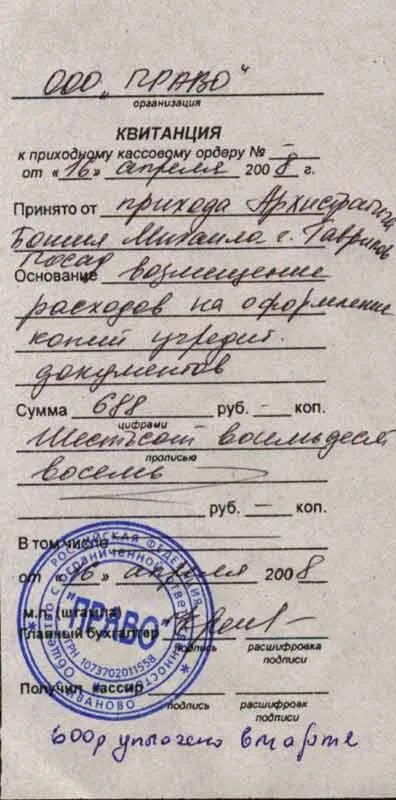 ООО „ПРАВО"
организация
КВИТАНЦИЯ
к приходному кассовому ордеру № –
от «16» апреля 2008 г.
Принято от прихода Архистратига
Божия Михаила с. Гаврилов
Посад
Основание возмещение
расходов на оформление
копий учредит.
документов
Сумма 688 руб. — коп.
цифрами
Шестьсот восемьдесят
прописью
восемь
руб. — коп.
В том числе
от «16» апреля 2008
м.п. (штампа)
Главный бухгалтер
подпись расшифровка подписи
Получил кассир
подпись расшифровк подписи
600р уплачено в марте
РОССИЙСКАЯ ФЕДЕРАЦИЯ
Общество с ограниченной ответственностью
"ПРАВО"
ОГРН 1073702011558
г. ИВАНОВО